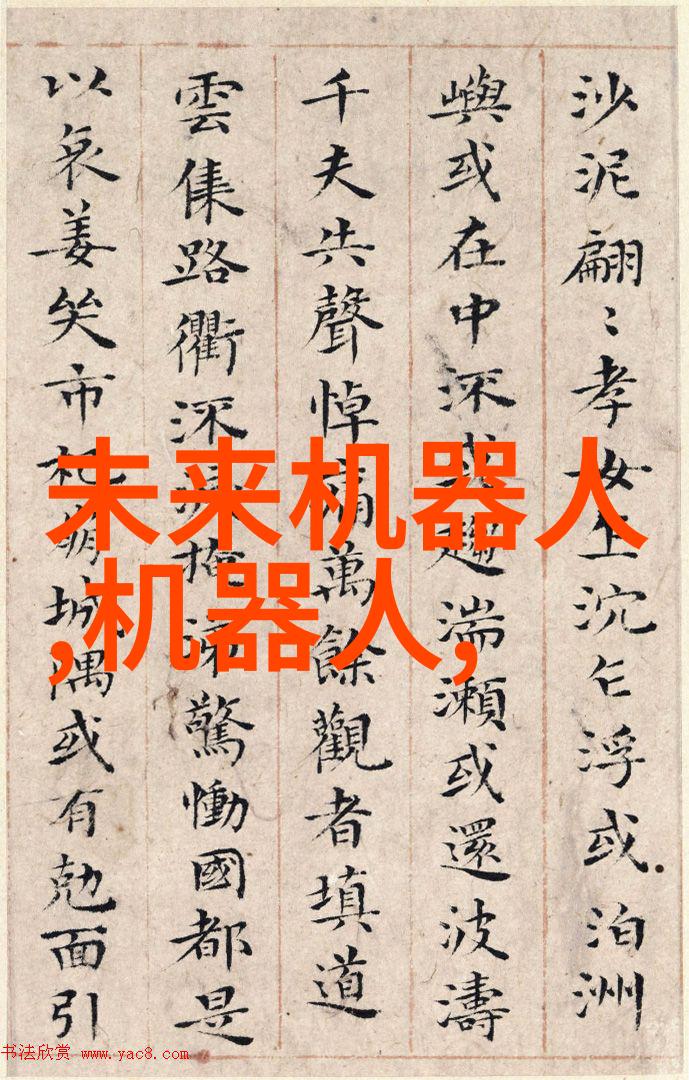 沙泥翩〻孝女乍沉乍浮或泊洲
嶼或在中流或趨湍瀨或還波濤
千夫失聲悼痛萬餘觀者填道
雲集路衢流淚掩涕驚慟國都是
以哀姜哭市杞崩城隅或有尅面引
未来机器人
,机器人,
书法欣赏 www.yac8.com